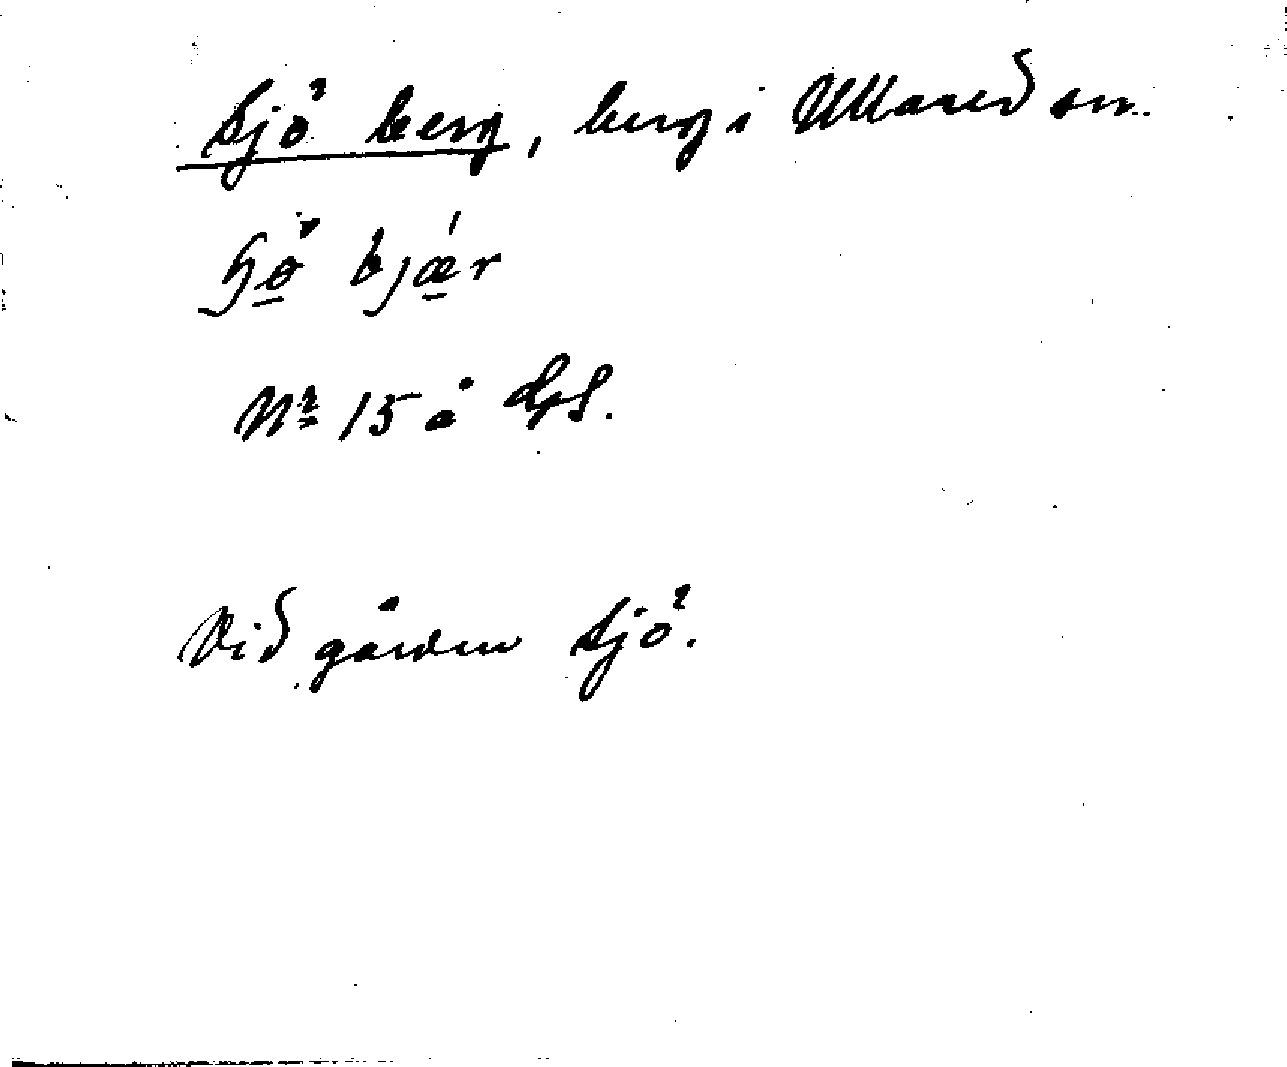 Sjö berg, berg i Ullared sn.
bjær
Nr 15 å
Vid gården Sjö.